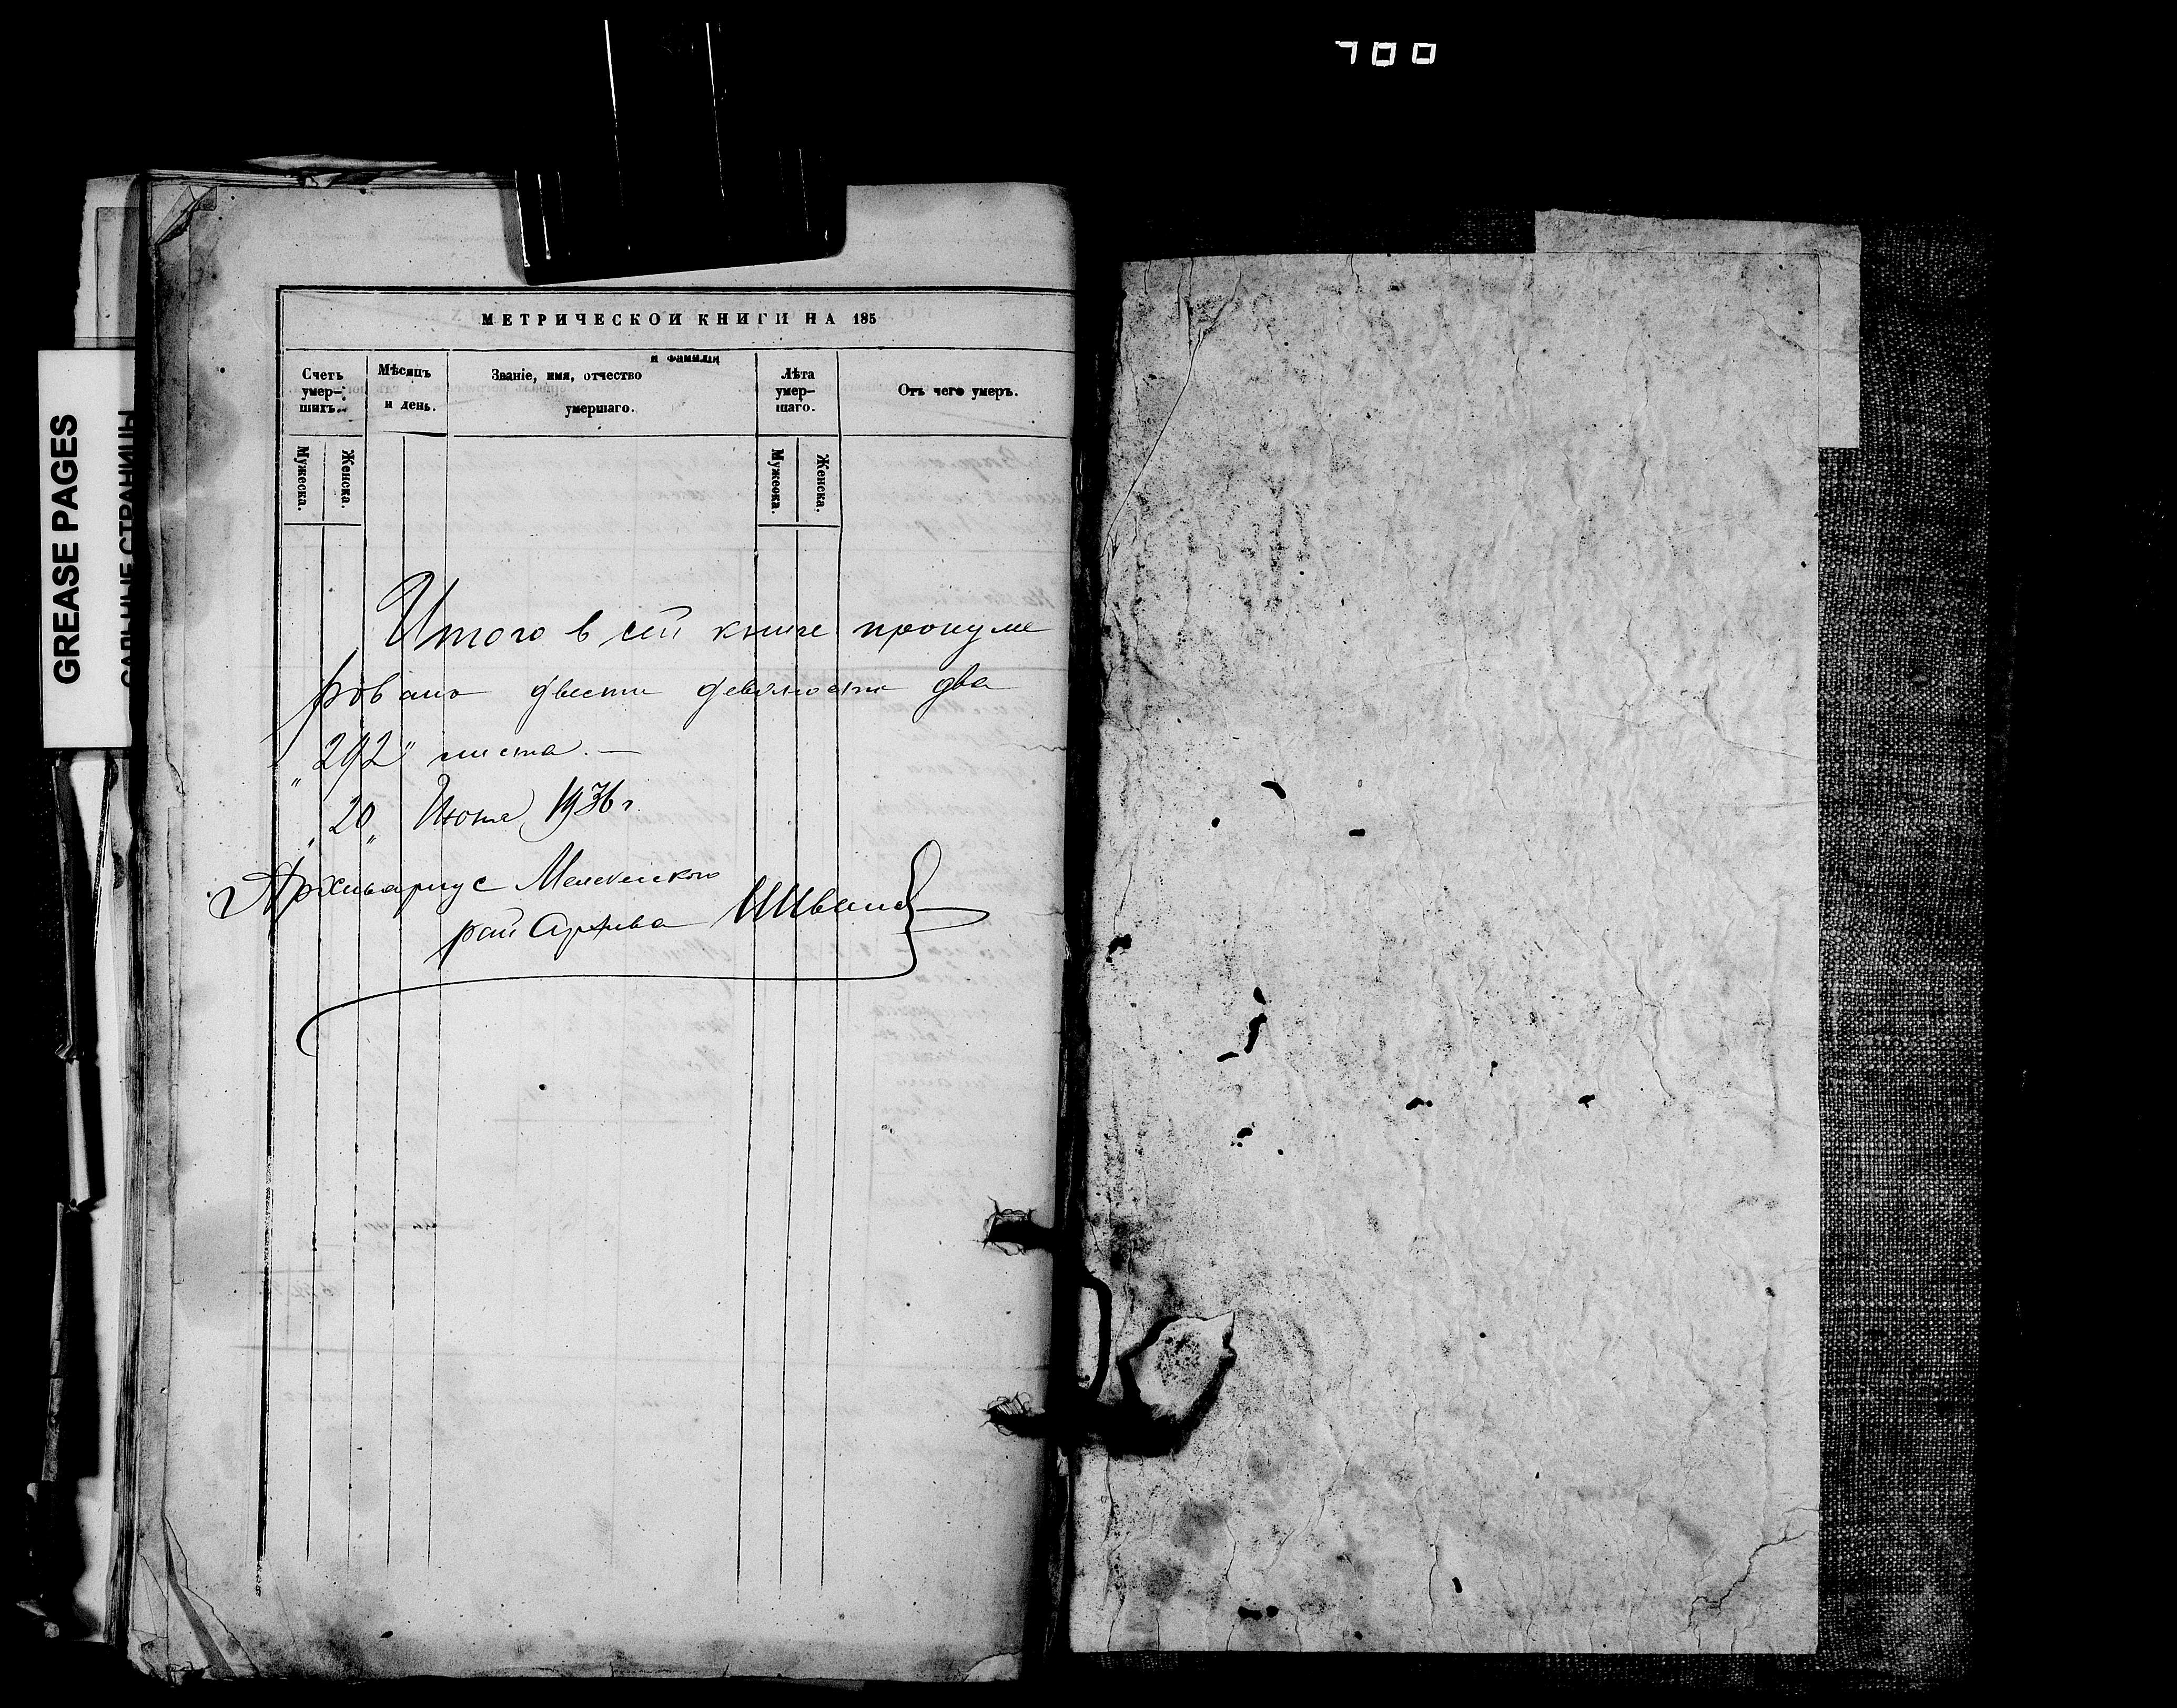 700
GREASE PAGES
САЛЬНЫЕ СТРАНИЦЫ
МЕТРИЧЕСКОЙ КНИГИ НА 185
Счетъ умер-шихъ.
Мѣсяцъ и день.
и фамилія
Званіе, имя, отчество
умершаго.
Лѣта умер-шаго.
Отъ чего умеръ.
Мужеска.
Женска.
Мужеска.
Женска.
Итого в сей книге пронуме
ровано двести девяносто два
"292" листа. —
"20" Июня 1936 г.
Архивариус Меленковского
рай Архива